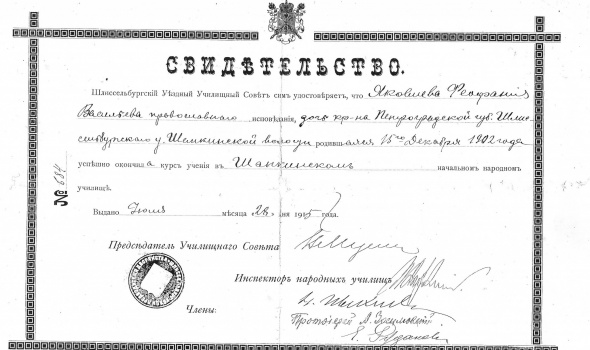 СВИДѢТЕЛЬСТВО.
Шлиссельбургскій Уѣздный Училищный Совѣтъ симъ удостовѣряетъ, что Яковлева Феофанія
Васильева православнаго исповѣданія, дочь кр-на Петроградской губ. Шлис
сельбургскаго у. Шапкинской волости родившаяся 15го Декабря 1902 года
успѣшно окончила курсъ ученія въ Шапкинскомъ начальномъ народномъ
училищѣ.
№ 684
Выдано Іюля мѣсяца 28 дня 1915 года.
Предсѣдатель Училищнаго Совѣта
Инспекторъ народныхъ училищъ
Члены:
Протоіерей А.